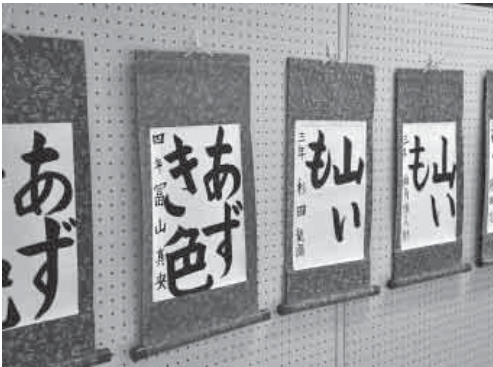 あず
あず
き色
四年 冨山真
山い
も
三年 杉田
山い
も
三年